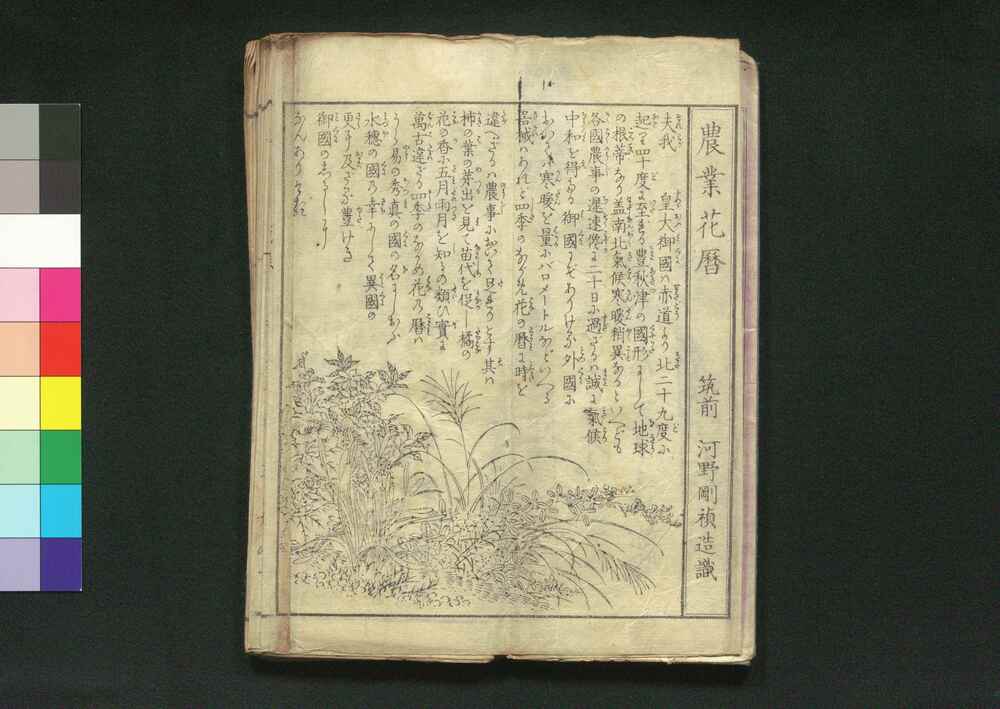 農業花暦 筑前 河野剛禎造識
夫我 皇大御國ハ赤道より北二十九度に
起り四十度に至れる豊秋津の國形にして地球
の根蒂なり盖南北氣候寒暖稍異ありといへども
各國農事の遅速僅に二十日に過ざるハ誠に氣候
中和を得たる御國にぞありける外國に
おゐてハ寒暖を量にバロメートルなどいへる
器械ハあれど四季のながめ花の暦に時を
違へざるハ農事において且まれなりとす其ハ
柿の葉の芽出を見て苗代を促し橘の
花の香に五月雨月を知るの類ひ實に
萬古違ざる四季のながめ花の暦ハ
うら易の秀真の國の名にしおふ
水穂の國の幸にして異國の
更に及ざる豊けき
御國のしるしに
なんありける